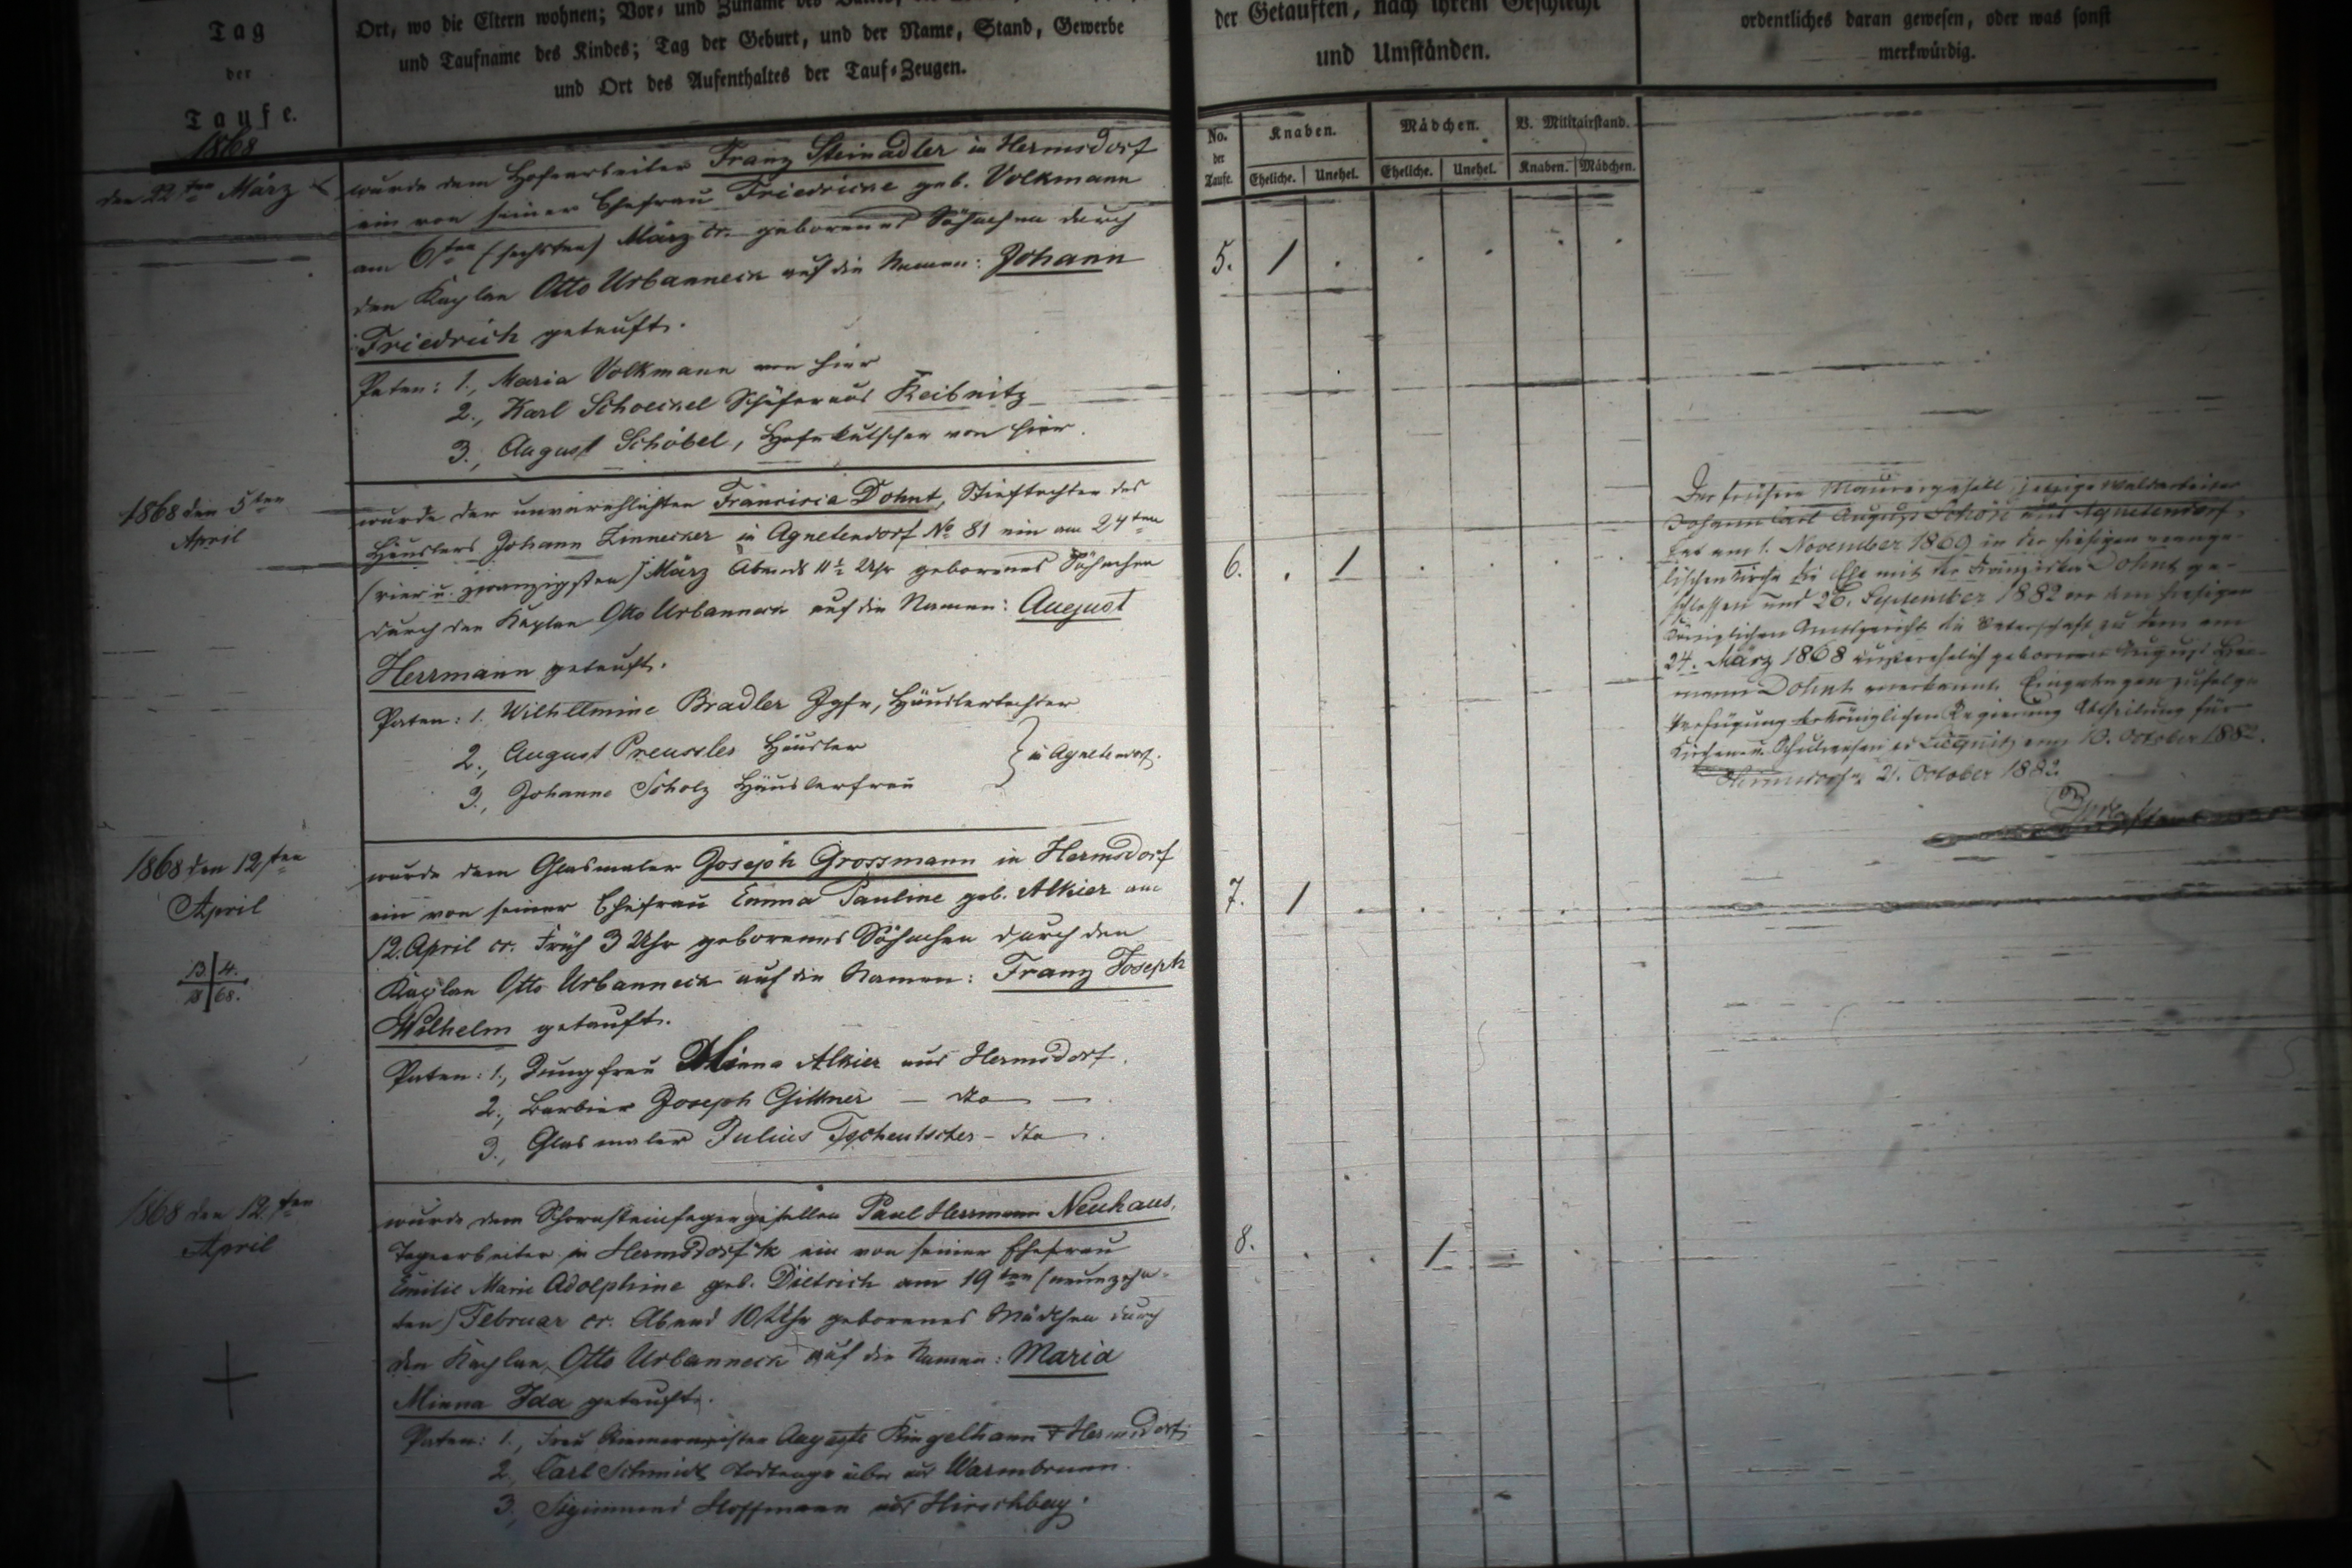 Tag
der
Taufe.
1868
Ort, wo die Eltern wohnen; Vor- und Zuname des
und Taufname des Kindes; Tag der Geburt, und der Name, Stand, Gewerbe
und Ort des Aufenthaltes der Tauf-Zeugen.
der Getauften, nach ihrem Geschlecht
und Umständen.
ordentliches daran gewesen, oder was sonst
merkwürdig.
No. der Taufe.
Knaben. Mädchen. V. Militairstand.
Eheliche. Unehel. Eheliche. Unehel. Knaben. Mädchen.
den 22ten März
wurde dem Hofearbeiter Franz Steinadler in Hermsdorf
ein von seiner Ehefrau Friedricke geb. Volkmann
am 6ten (sechsten) März cr. geborenes Söhnchen durch
den Kaplan Otto Urbanneck auf die Namen: Johann
Friedrich getauft.
Paten: 1., Maria Volkmann von hier
2., Karl Schoeckel Schäfer aus Keibnitz
3., August Schöbel, Hofekutscher von hier.
5. 1
1868 den 5ten
April
wurde der unverehlichten Francisca Dohnt, Stieftochter des
Häuslers Johann Zinnecker in Agnetendorf No 81 ein am 24ten
(vier u. zwanzigsten) März Abends 11½ Uhr geborenes Söhnchen
durch den Kaplan Otto Urbanneck auf die Namen: August
Herrmann getauft.
Paten: 1. Wilhellmine Bradler Jgfr, Häuslertochter
2., August Preussler Häusler
3., Johanne Scholz Häuslerfrau
in Agnetendorf.
6. 1
Der frühere Maurergesell jetzige Waldarbeiter
Johann Carl August aus Agnetendorf,
hat am 1. November 1869 in der hiesigen evange-
lischen Kirche die Ehe mit der Franziska Dohnt ge-
schlossen und 26. September 1882 vor dem hiesigen
Königlichen Amtsgericht die Vaterschaft zu dem am
24. März 1868 außerehelich geborenen August Her-
mann Dohnt anerkannt. Eingetragen zufolge
Verfügung der Königlichen Regierung Abtheilung für
Kirchen- u. Schulwesen zu Liegnitz vom 13. October 1882.
Hermsdorf 21. October 1882.
1868 den 12ten
April
13. 4.
18 68.
wurde dem Glasmaler Joseph Grossmann in Hermsdorf
ein von seiner Ehefrau Emma Pauline geb. Alkier am
12. April cr. Früh 3 Uhr geborenes Söhnchen durch den
Kaplan Otto Urbanneck auf die Namen: Franz Joseph
Wilhelm getauft.
Paten: 1., Jungfrau Minna Alkier aus Hermsdorf.
2., Barbier Joseph Gittner — dto —
3., Glasmaler Julius Tschentscher — dto —.
7. 1
1868 den 12ten
April
wurde dem Schornsteinfegergesellen Paul Herrmann Neuhaus,
Tagearbeiter in Hermsdorf ein von seiner Ehefrau
Emilie Marie Adolphine geb. Dietrich am 19ten (neunzehn-
ten) Februar cr. Abend 10 Uhr geborenes Mädchen durch
den Kaplan Otto Urbanneck auf die Namen: Maria
Minna Ida getauft.
Paten: 1., Frau Riemermeister Auguste Ringelhann Hermsdorf,
2., Carl Schmidt Todtengräber aus Warmbrunn.
3., Sigismund Hoffmann aus Hirschberg.
8. 1